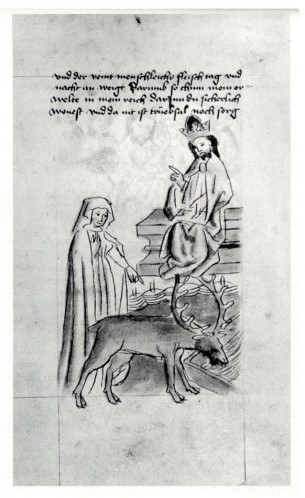 und der veint menschleichs fleisch tag und
nacht an weigt Darumb so chum mein er
welte in mein reich dar Inn du sicherlich
wonest und da nit ist trüebsal noch sorg